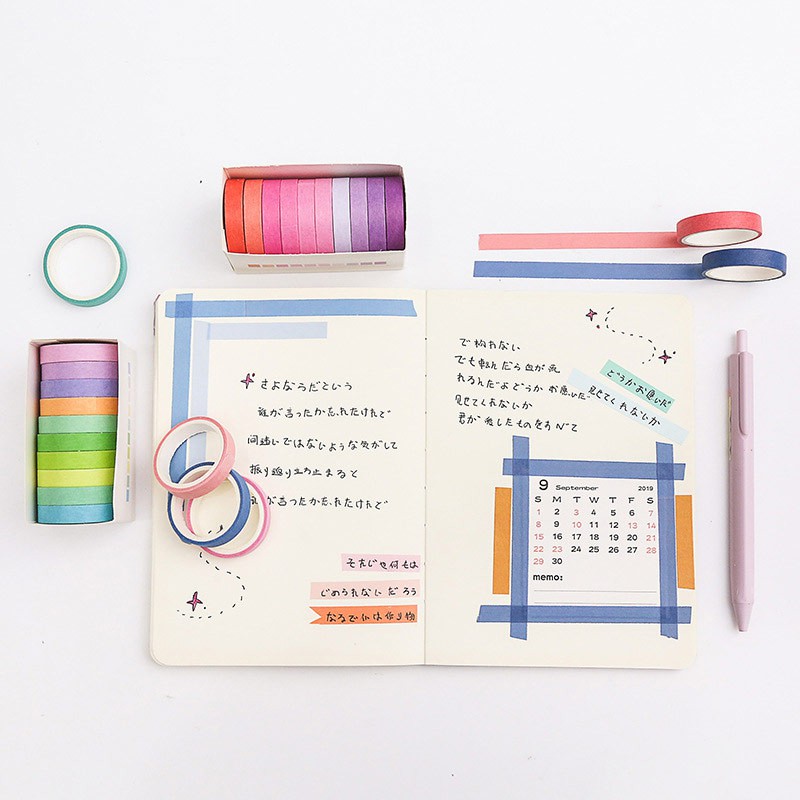 さよならだという
誰が言ったか忘れたけれど
間違いではないような気がして
振り返り立ち止まると
が言ったか忘れたけれど
も何もは
じめられない だろう
なるで
でもだら血が
れるんだよ どうか お願いだ
見せてくれないか
君が したものを
どうかお願いだ
見せてくれないか
9 September 2019
S M T W T F S
1 2 3 4 5 6 7
8 9 10 11 12 13 14
15 16 17 18 19 20 21
22 23 24 25 26 27 28
29 30
memo: